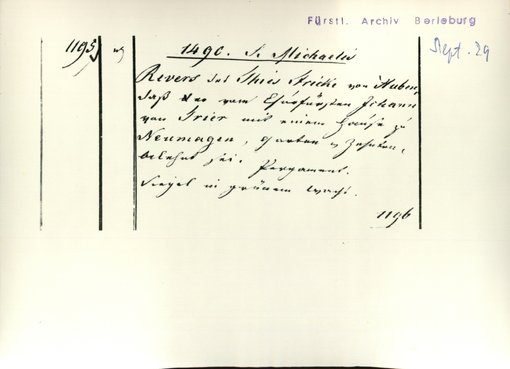 Fürstl. Archiv Berleburg
Sept. 29
1195
1490. S. Michaelis
Revers des Thies Stricke von Huben,
daß er vom Churfürsten Johann
von Trier mit einem Hause zu
Neumagen, Garten u Zehnten,
belehnt sei. Pergament.
Siegel in grünem Wachs.
1196